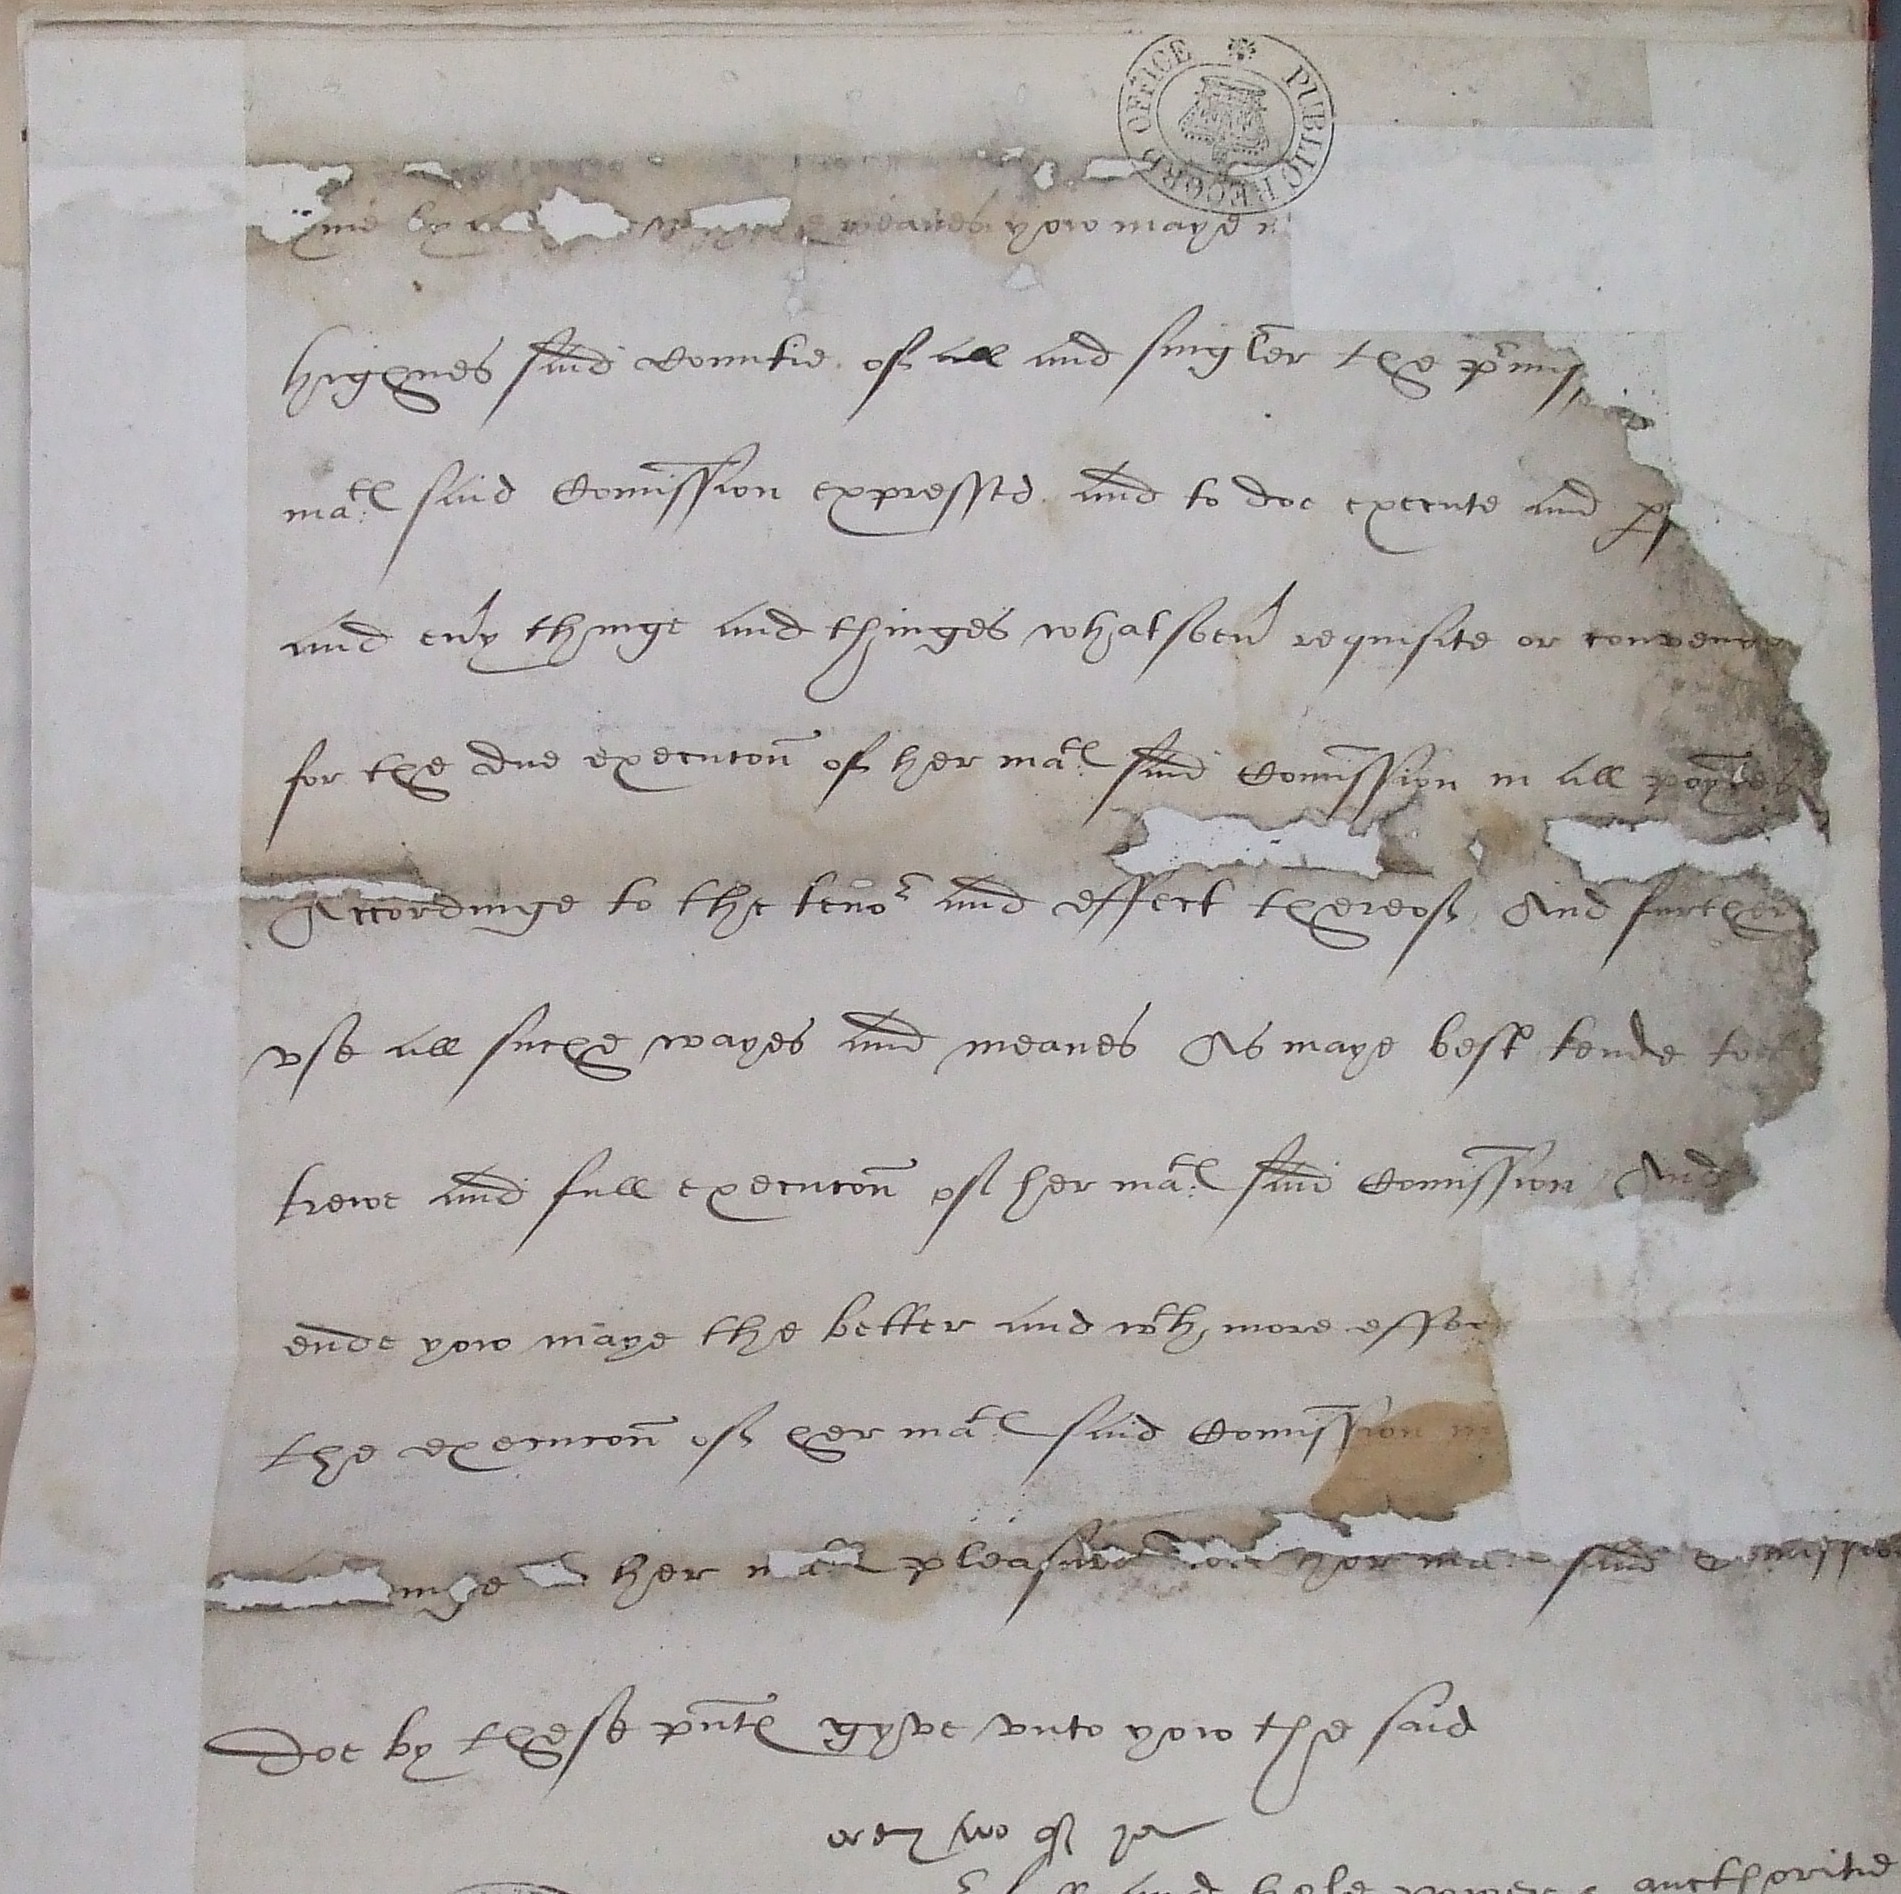 PUBLIC RECORD OFFICE
by meanes yow maye
highnes said Countie of all and singler the pmis
matl said Comission expressed and to doe execute and p
and eny thinge and thinges whatsoeu requisite or conven
for the due execucon of her matl said Comission in all poyntes
Accordinge to the tenor and effect thereof, And further
vse all suche wayes and meanes As maye best tende to
trewe and full execucon of her matl said Comission And
ende yow maye the better and wth more effec
the execucon of her matl said Comission
inge her matl pleasure her ma said Comission
Doe by these pntl gyve vnto yow the said
and hole power aucthoritie